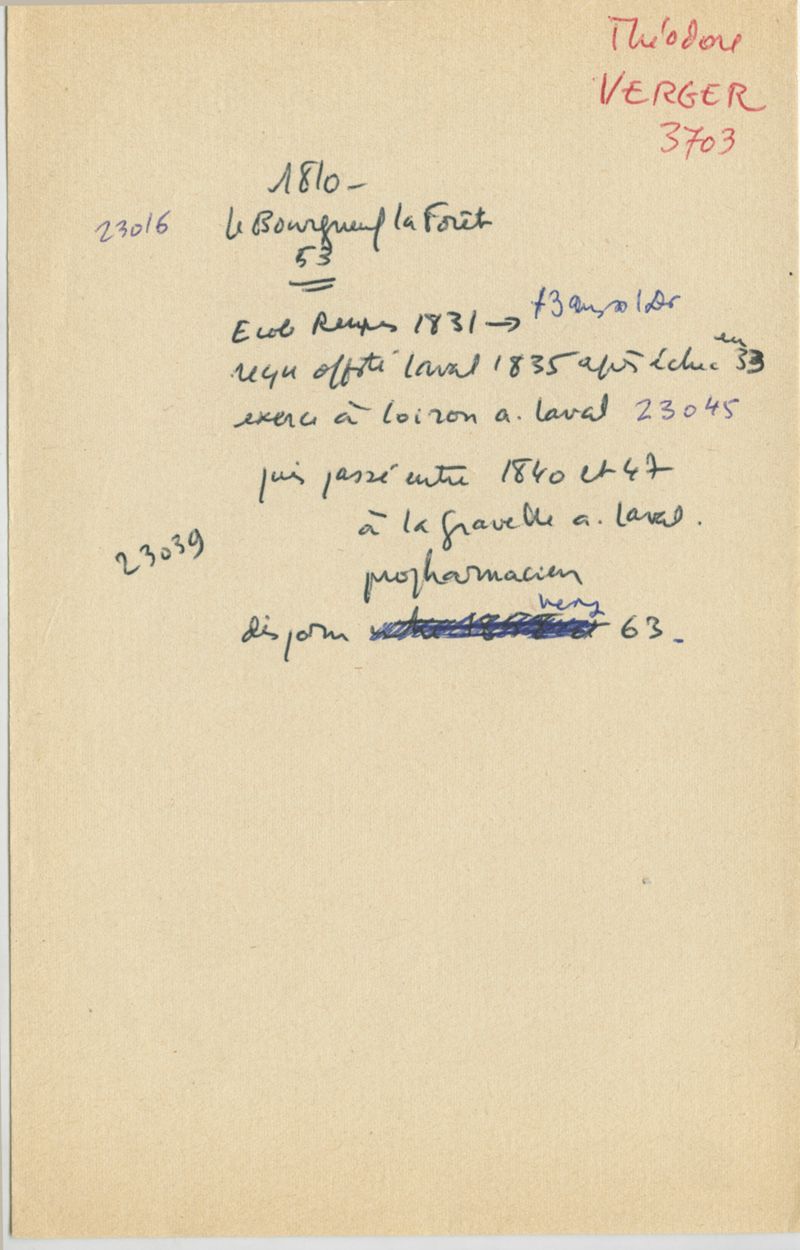 Théodore
VERGER
3703
1810 -
23016 le Bourgneuf la Forêt
53
Ecole Rennes 1831 → + 3 ans
reçu offste Laval 1835 après échec en 33
exerce à Loiron a. Laval 23045
puis passé entre 1840 et 47
à la Gravelle a. Laval.
23039
propharmacien
disparu vers 63.